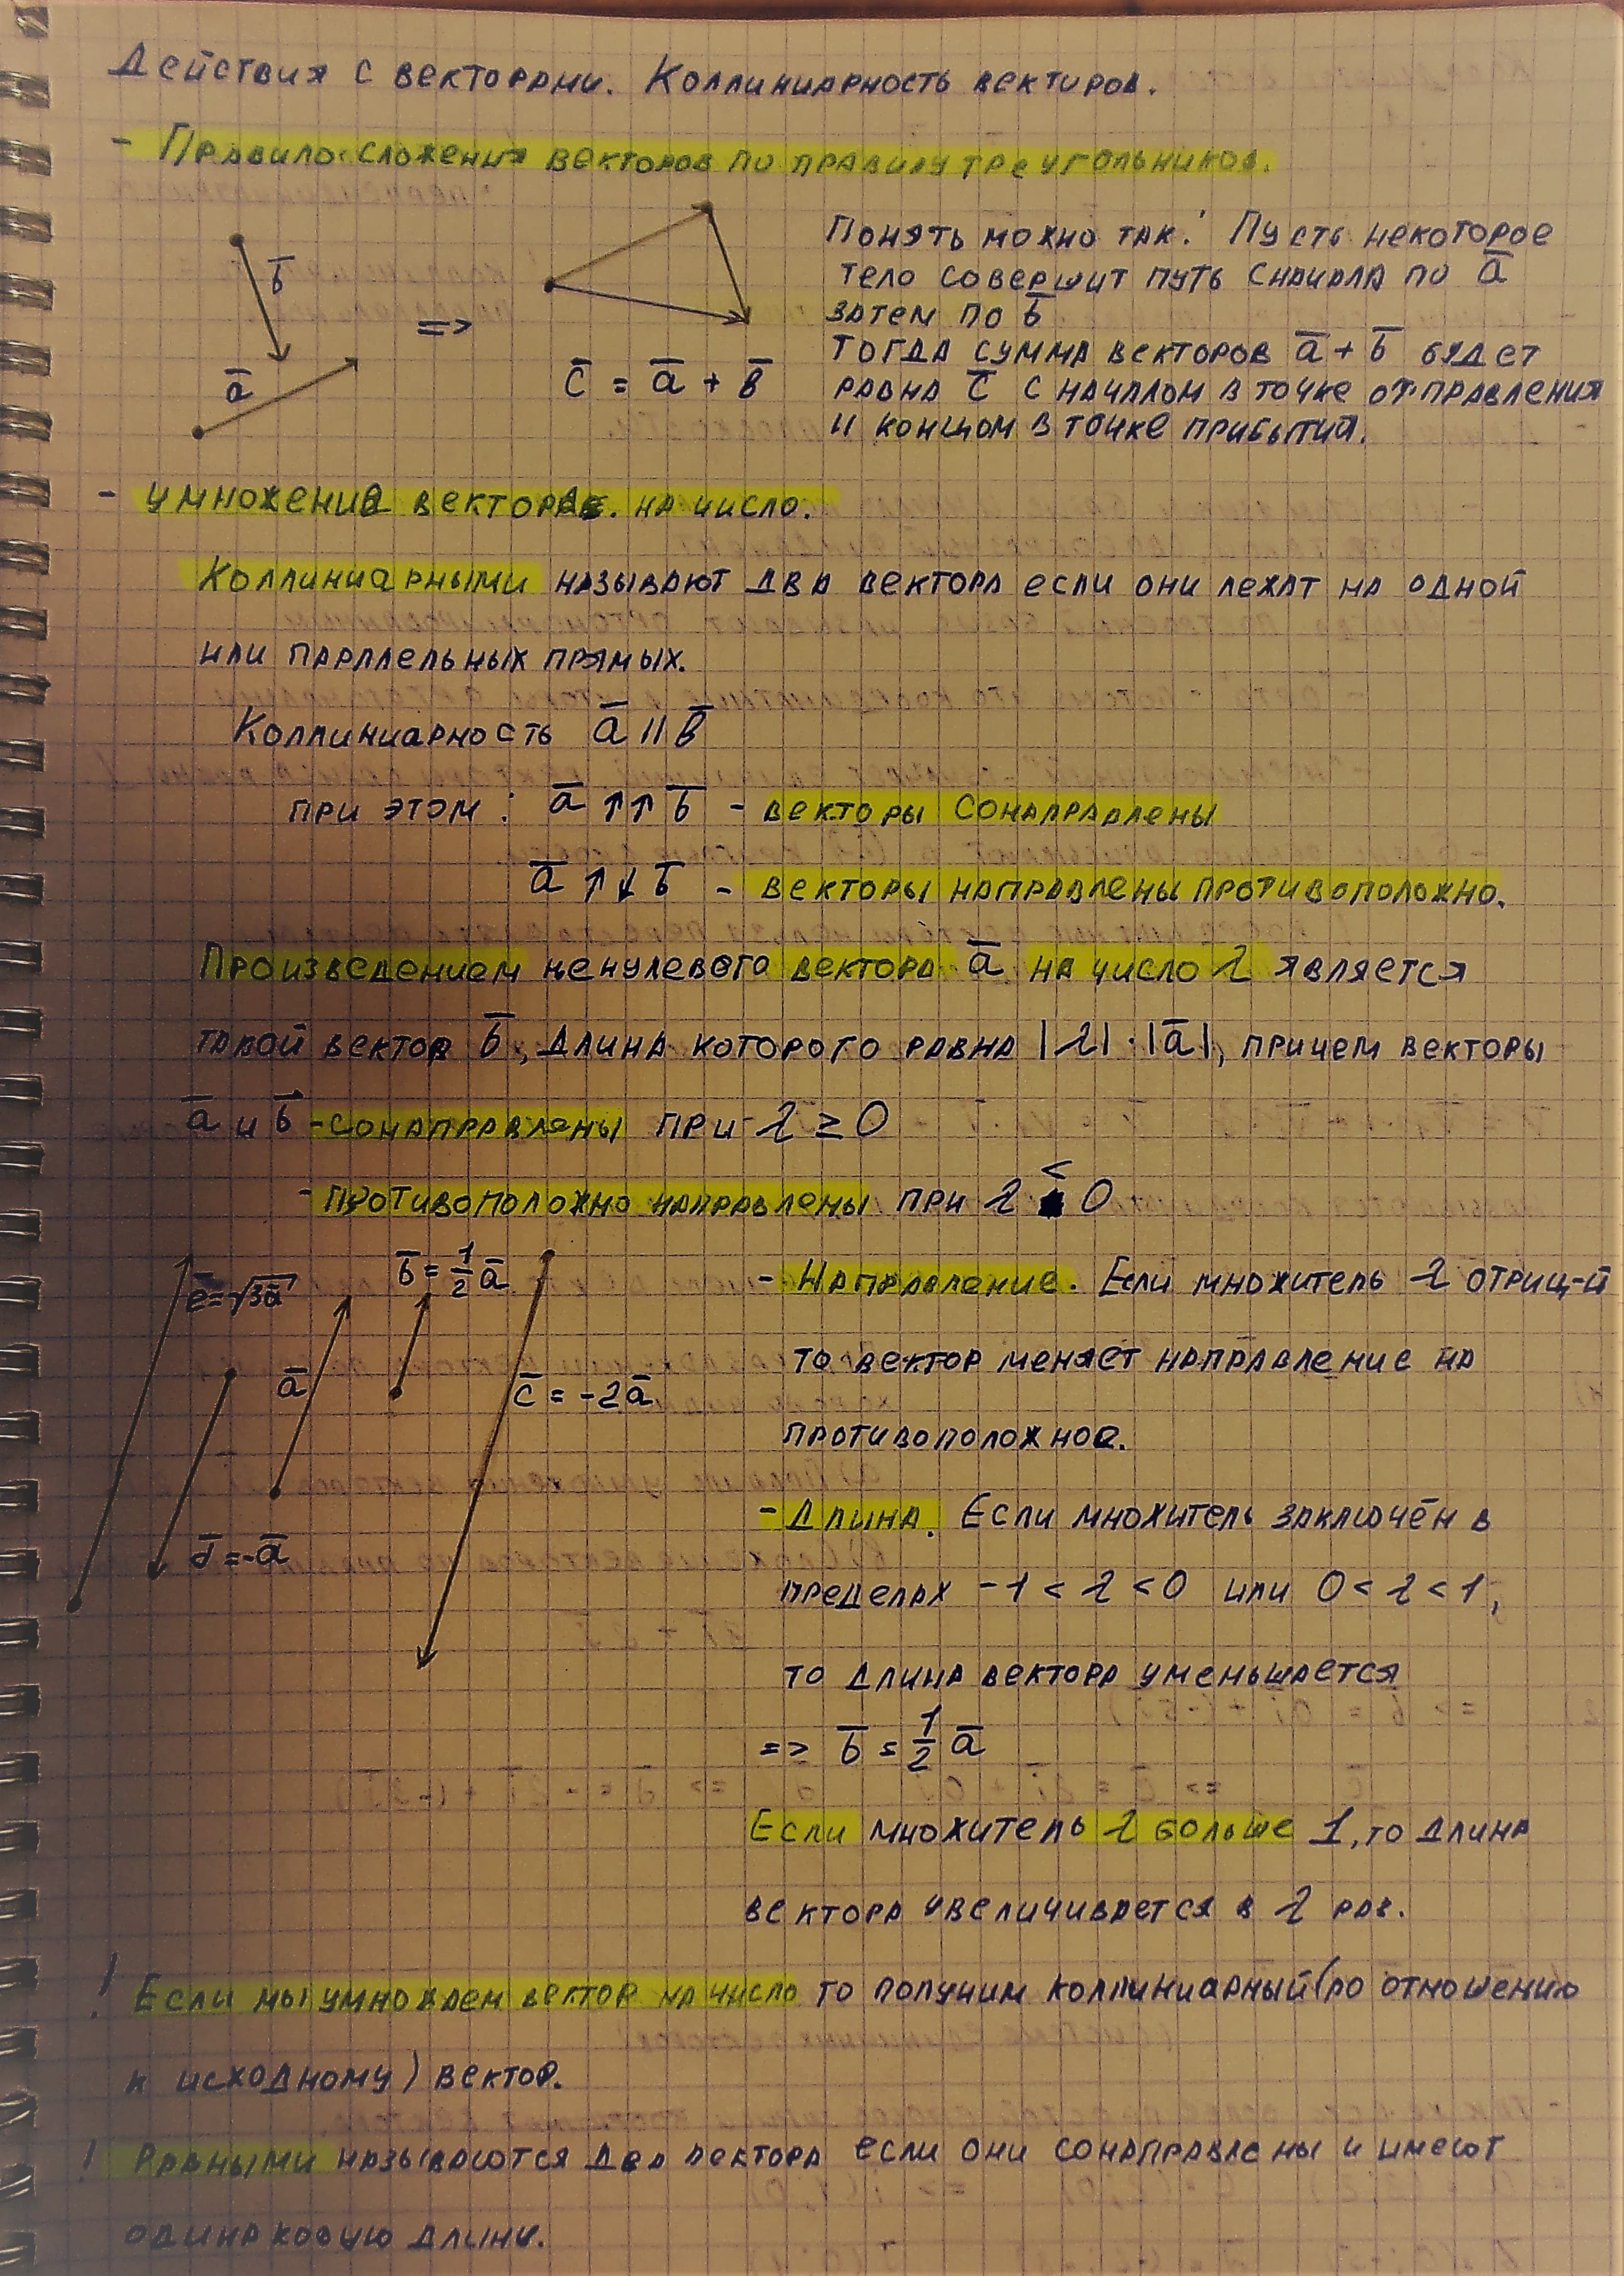 Действия с векторами. Коллиниарность векторов.
- Правило сложения векторов по правилу треугольников.
b̅
a̅
=>
c̅ = a̅ + b̅
Понять можно так: Пусть некоторое
тело совершит путь сначала по a̅
затем по b̅
тогда сумма векторов a̅ + b̅ будет
равна c̅ с началом в точке отправления
и концом в точке прибытия.
- умножение вектора на число.
Коллиниарными называют два вектора если они лежат на одной
или параллельных прямых.
Коллиниарность a̅ || b̅
при этом: a̅ ↑↑ b̅ - векторы сонаправлены
a̅ ↑↓ b̅ - векторы направлены противоположно.
Произведением ненулевого вектора a̅ на число λ является
такой вектор b̅, длина которого равна |λ|·|a̅|, причем векторы
a̅ и b̅ - сонаправлены при λ ≥ 0
- противоположно направлены при λ < 0
e̅=√3a̅
b̅ = 1/2 a̅
a̅
c̅ = -2a̅
d̅ = -a̅
- Направление. Если множитель λ отриц-й
то вектор меняет направление на
противоположное.
- Длина. Если множитель заключён в
пределах -1 < λ < 0 или 0 < λ < 1,
то длина вектора уменьшается
=> b̅ = 1/2 a̅
Если множитель λ больше 1, то длина
вектора увеличивается в λ раз.
! Если мы умножаем вектор на число то получим коллиниарный (по отношению
к исходному) вектор.
! Равными называются два вектора если они сонаправлены и имеют
одинаковую длину.